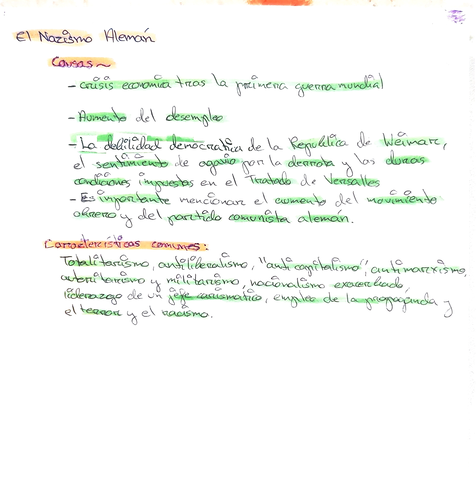 El Nazismo Alemán
Causas ~
- Crisis economica tras la primera guerra mundial
- Aumento del desempleo
- La debilidad democratica de la Republica de Weimar,
el sentimiento de agavio por la derrota y las duras
condiciones impuestas en el Tratado de Versalles
- Es importante mencionar el aumento del movimiento
obrero y del partido comunista alemán.
Características comunes:
Totalitarismo, antiliberalismo, "anti capitalismo", antimarxismo,
autoritarismo y militarismo, nacionalismo exacerbado,
liderazgo de un jefe carismatico, empleo de la propaganda y
el terror y el racismo.